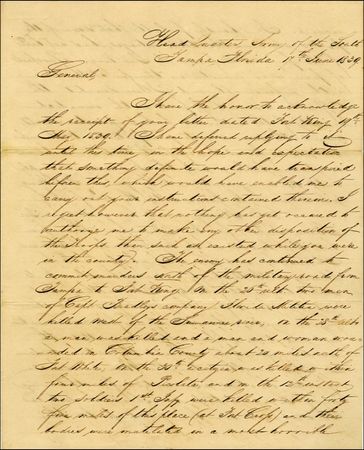 Head Quarters Army of the South
Tampa Florida 17th June 1839
General,
I have the honor to acknowledge
the receipt of your letter dated Fort King 19th
May 1839. I have deferred replying to it
until this time in the hope and expectation
that something definite would have transpired
before this, which would have enabled me to
carry out your instructions contained therein. I
regret however that nothing has yet occured to
authorize me to make any other disposition of
the troops than such as existed while you were
in the country. The enemy has continued to
commit murders north of the military road from
Tampa to Fort King. On the 23d ult two men
of Capt company Florida Militia were
killed West of the Suwannee river, on the 25th ulto
a man was killed and a man and woman wounded
in Columbia County about 20 miles north of
Fort White. On the 28th a citizen was killed within
four miles of and on the 12th instant
two soldiers 1st Infy were killed within forty
five miles of this place (at Fort Cross) and their
bodies were mutilated in a most horrible